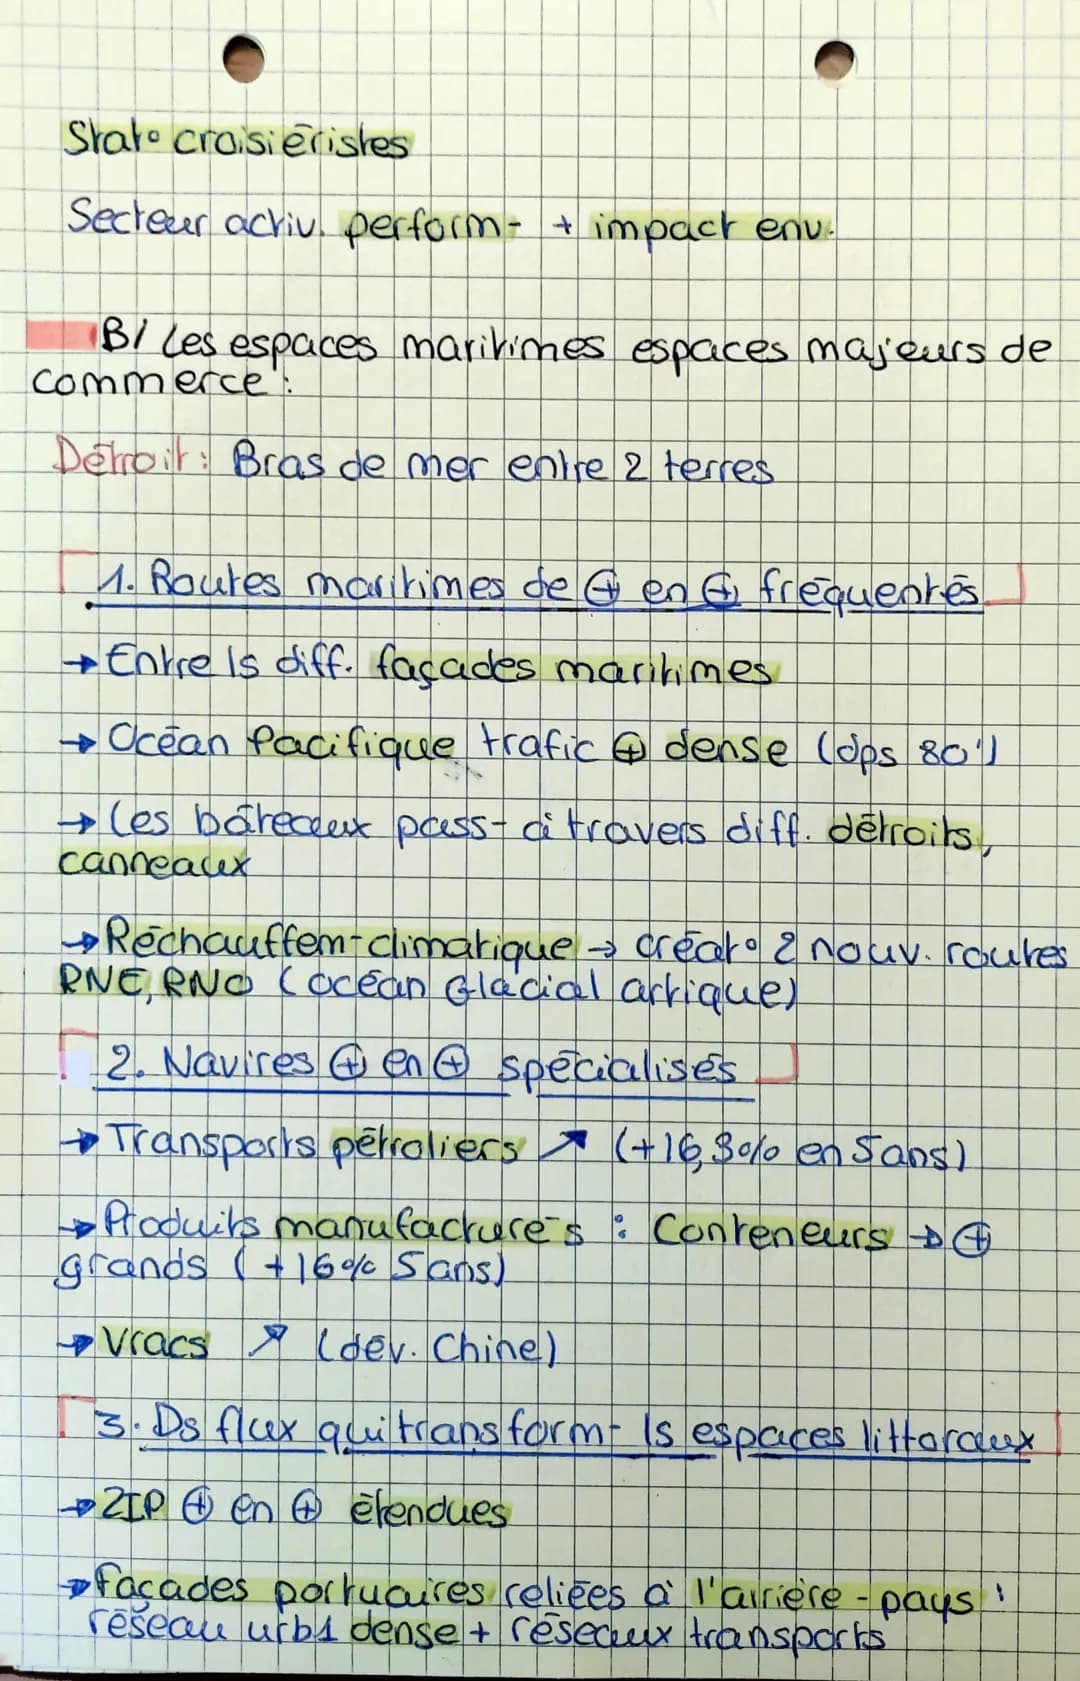 Stat° croisiéristes
Secteur activ. perform- + impact env.
B/ Les espaces maritimes espaces majeurs de
commerce :
Détroit : Bras de mer entre 2 terres
1. Routes maritimes de ⊕ en ⊕ fréquentés
→ Entre ls diff. façades maritimes
→ Océan Pacifique trafic ⊕ dense (dps 80')
→ Les bâteaux pass- à travers diff. détroits,
canneaux
→ Réchauffem- climatique → créat° 2 nouv. routes
RNE, RNO (océan Glacial artique)
2. Navires ⊕ en ⊕ spécialisés
→ Transports pétroliers ↗ (+16,3% en 5 ans)
→ Produits manufacturés : Conteneurs → ⊕
grands (+16% 5 ans)
→ Vracs ↗ (dév. Chine)
3. Ds flux qui transform- ls espaces littoraux
→ ZIP ⊕ en ⊕ étendues
→ façades portuaires reliées à l'arrière-pays :
réseau urb1 dense + réseaux transports